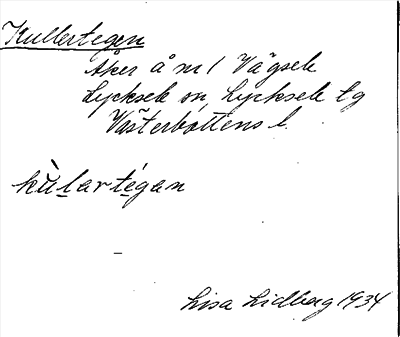 Kullertegen
Åker å m / Vägsele
Lycksele sn, Lycksele tg
Västerbottens l.
kùlartégan
Lisa Lidberg 1934